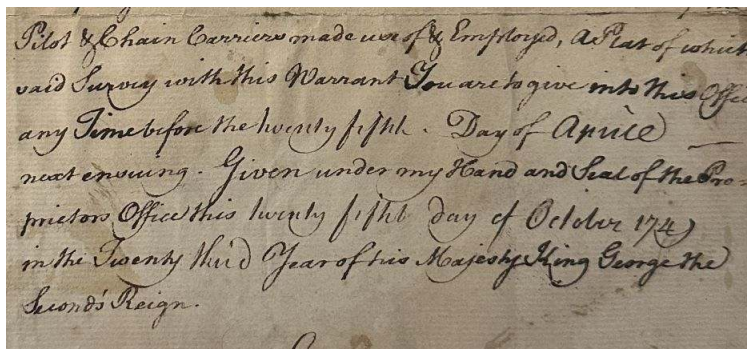 Pilot & Chain Carriers made use of & Employed, A Plat of which
said Survey with this Warrant You are to give into this Office
any Time before the twenty fifth. Day of April
next ensuing. Given under my Hand and Seal of the Pro-
prietors Office this twenty fifth day of October 1749
in the Twenty third Year of his Majesty King George the
Second's Reign.